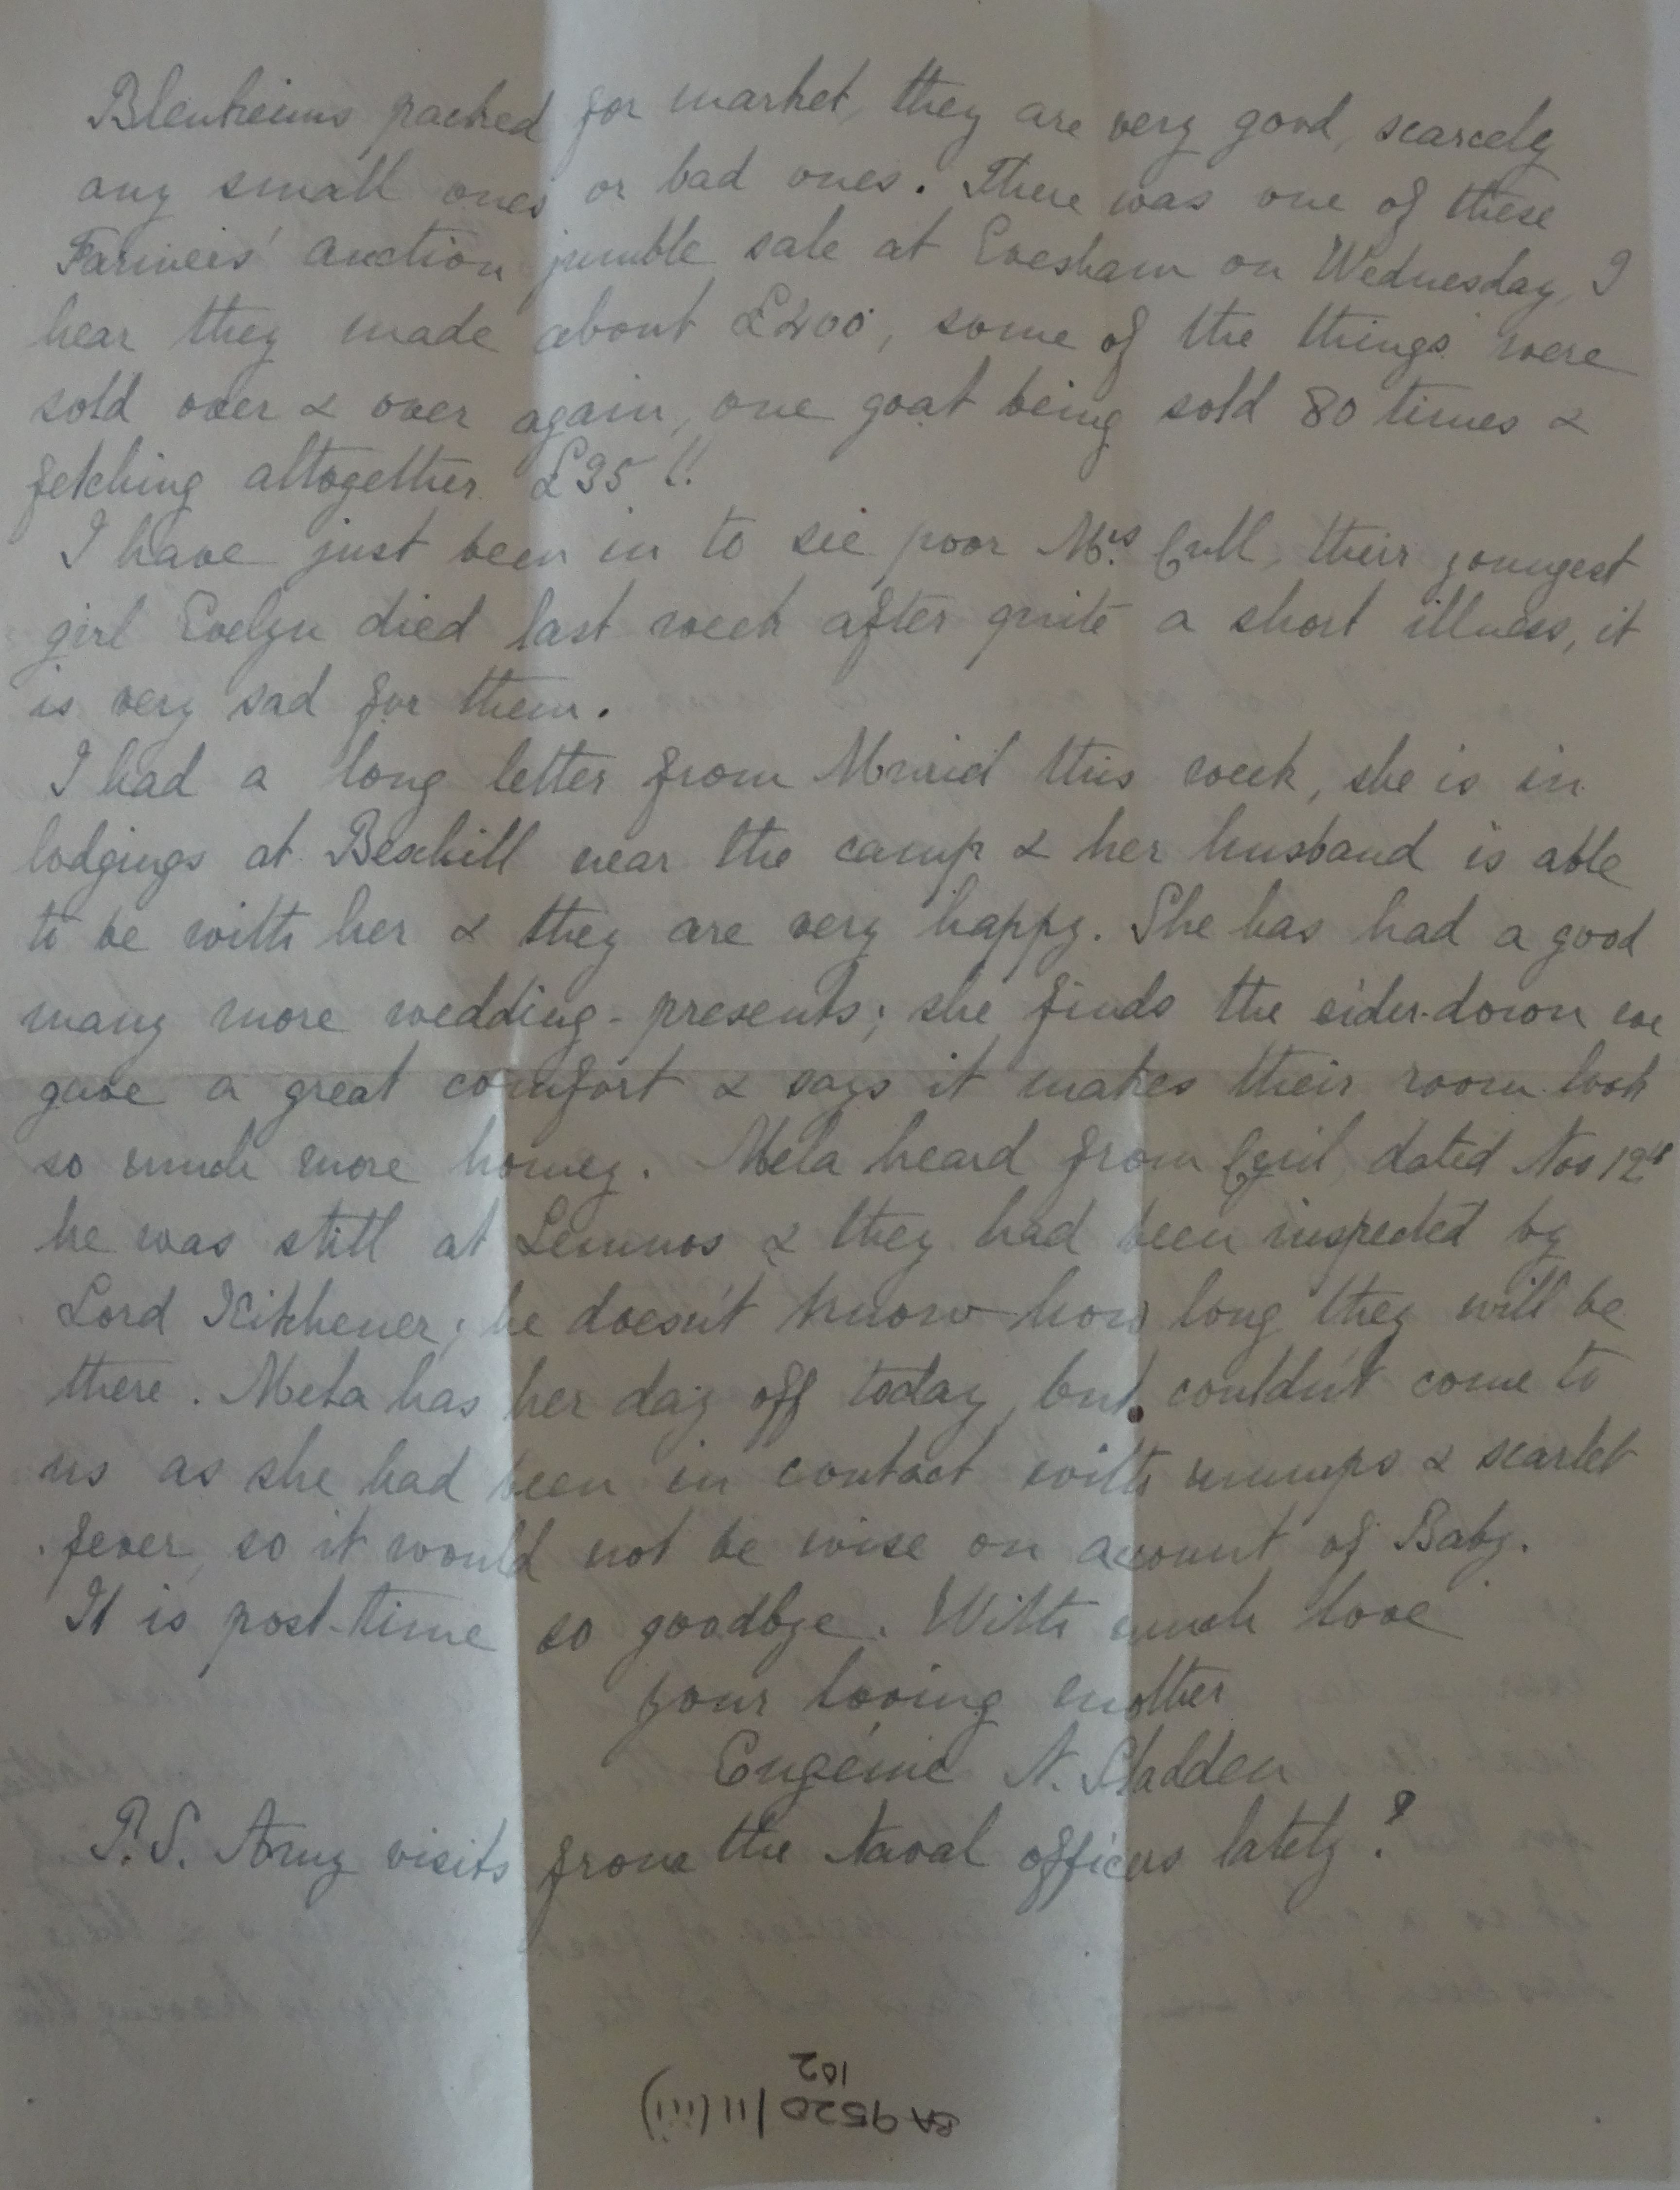 Blenheims packed for market, they are very good, scarcely
any small ones or bad ones. There was one of these
Farmers' auction jumble sale at Evesham on Wednesday, I
hear they made about £200, some of the things were
sold over & over again, one goat being sold 80 times &
fetching altogether £35!!
I have just been in to see poor Mrs. Cull, their youngest
girl Evelyn died last week after quite a short illness, it
is very sad for them.
I had a long letter from Muriel this week, she is in
lodgings at Bexhill near the camp & her husband is able
to be with her & they are very happy. She has had a good
many more wedding-presents; she finds the eider-down we
gave a great comfort & says it makes their room look
so much more homey. Mela heard from Cyril, dated Nov 12th
he was still at Lemnos & they had been inspected by
Lord Kitchener; he doesn't know how long they will be
there. Mela has her day off today, but couldn't come to
us as she had been in contact with mumps & scarlet
fever, so it would not be wise on account of Baby.
It is post-time so goodbye. With much love
your loving mother
Eugénie N. Sladden
P.S. Any visits from the Naval officers lately?
BA 9520/11(iii)
102